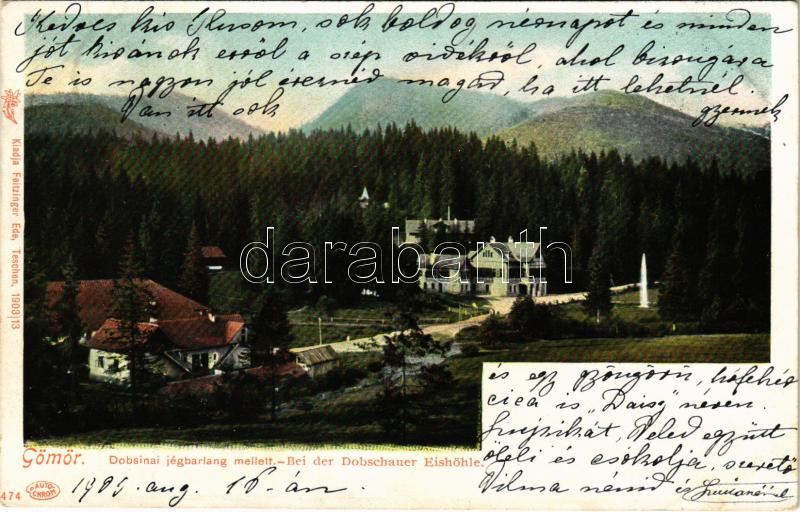 Kedves kis Ilusom, sok boldog névnapot és minden
jót kivánok erről a szép vidékről, ahol bizonyára
Te is nagyon jól éreznéd magad, ha itt lehetnél.
Van itt sok gyermek
és egy gyöngyörű, hófehér
cica is "Daisy" néven.
Anyukát, Veled együtt
öleli és csókolja, szerető
Vilma nénid és
Kiadja Feitzinger Ede, Teschen, 1903/13
darabanth
Gömör. Dobsinai jégbarlang mellett.—Bei der Dobschauer Eishöhle.
474 AUTO CHROM 1905. aug. 16.-án.